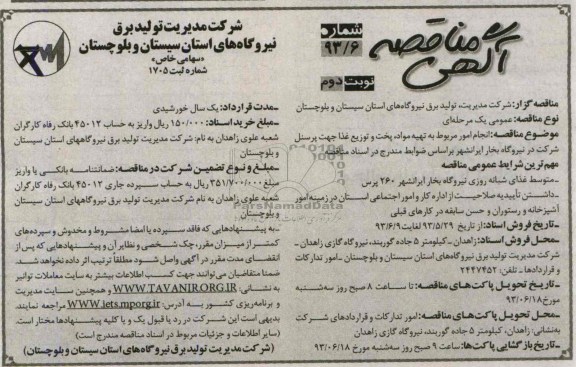 آگهی مناقصه
شماره
۹۳/۶
نوبت دوم
شرکت مدیریت تولید برق
نیروگاه‌های استان سیستان و بلوچستان
«سهامی خاص»
شماره ثبت ۱۷۰۵
مناقصه گزار: شرکت مدیریت، تولید برق نیروگاه‌های استان سیستان و بلوچستان
نوع مناقصه: عمومی یک مرحله‌ای
موضوع مناقصه: انجام امور مربوط به تهیه مواد، پخت و توزیع غذا جهت پرسنل
شرکت در نیروگاه بخار ایرانشهر براساس ضوابط مندرج در اسناد مناقصه
مهم‌ترین شرایط عمومی مناقصه
-متوسط غذای شبانه روزی نیروگاه بخار ایرانشهر ۲۶۰ پرس
-داشتن تأییدیه صلاحیت از اداره کار و امور اجتماعی استان در زمینه امور
آشپزخانه و رستوران و حسن سابقه در کارهای قبلی
-تاریخ فروش اسناد: از تاریخ ۹۳/۵/۲۹ لغایت ۹۳/۶/۹
-محل فروش اسناد: زاهدان-کیلومتر ۵ جاده گوربند، نیروگاه گازی زاهدان-
شرکت مدیریت تولید برق نیروگاه‌های استان سیستان و بلوچستان -امور تدارکات
و قراردادها ـ تلفن: ۲۴۴۷۴۵۲
-تاریخ تحویل پاکت‌های مناقصه: تا ساعت ۸ صبح روز سه‌شنبه
مورخ ۹۳/۰۶/۱۸
-محل تحویل پاکت‌های مناقصه: امور تدارکات و قراردادهای شرکت
به‌نشانی: زاهدان، کیلومتر ۵ جاده گوربند، نیروگاه گازی زاهدان
-تاریخ بازگشایی پاکت‌ها: ساعت ۹ صبح روز سه‌شنبه مورخ ۹۳/۰۶/۱۸
-مدت قرارداد: یک سال خورشیدی
-مبلغ خرید اسناد: ۱۵۰/۰۰۰ ریال واریز به حساب ۴۵۰۱۲ بانک رفاه کارگران
شعبه علوی زاهدان به نام: شرکت مدیریت تولید برق نیروگاههای استان سیستان
و بلوچستان
-مبلغ و نوع تضمین شرکت در مناقصه: ضمانتنامه بانکی یا واریز
مبلغ ۳۵۱/۷۰۰/۰۰۰ ریال به حساب سپرده جاری ۴۵۰۱۲ بانک رفاه کارگران
شعبه علوی زاهدان به نام شرکت مدیریت تولید برق نیروگاههای استان سیستان
و بلوچستان
-به پیشنهادهایی که فاقد سپرده یا امضا مشروط و مخدوش و سپرده‌های
کمتر از میزان مقرر، چک شخصی و نظایر آن و پیشنهادهایی که پس از
انقضای مدت مقرر در آگهی واصل شود مطلقاً ترتیب اثر داده نخواهد شد.
ضمنا متقاضیان می‌توانند جهت کسب اطلاعات بیشتر به سایت معاملات توانیر
به نشانی: WWW.TAVANIR.ORG.IR و همچنین سایت مدیریت
و برنامه‌ریزی کشور به آدرس: WWW.iets.mporg.ir مراجعه نمایند.
بدیهی است این شرکت در رد یا قبول یک و یا کلیه پیشنهادها مختار است.
(سایر اطلاعات و جزئیات مربوط در اسناد مناقصه مندرج است)
(شرکت مدیریت تولید برق نیروگاه‌های استان سیستان و بلوچستان)
ParsNamadData